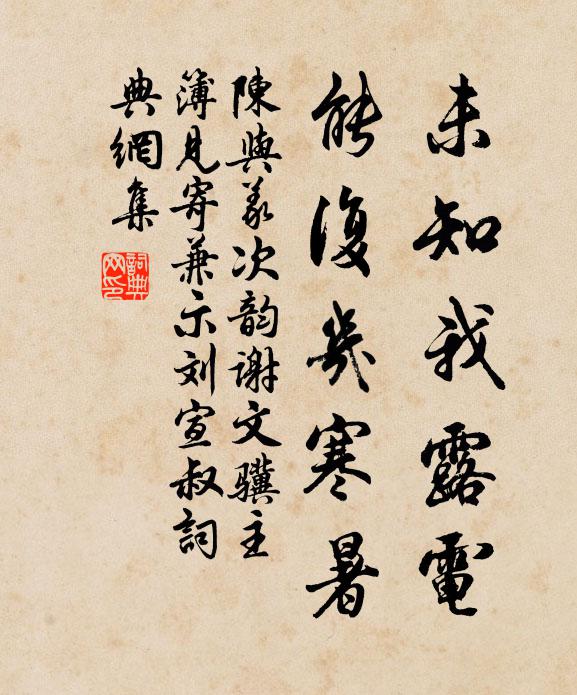 未知我露電
能復幾寒暑
陳與義次韵謝文驥主
簿見寄兼示刘宣叔詞
典網集
詞典網印